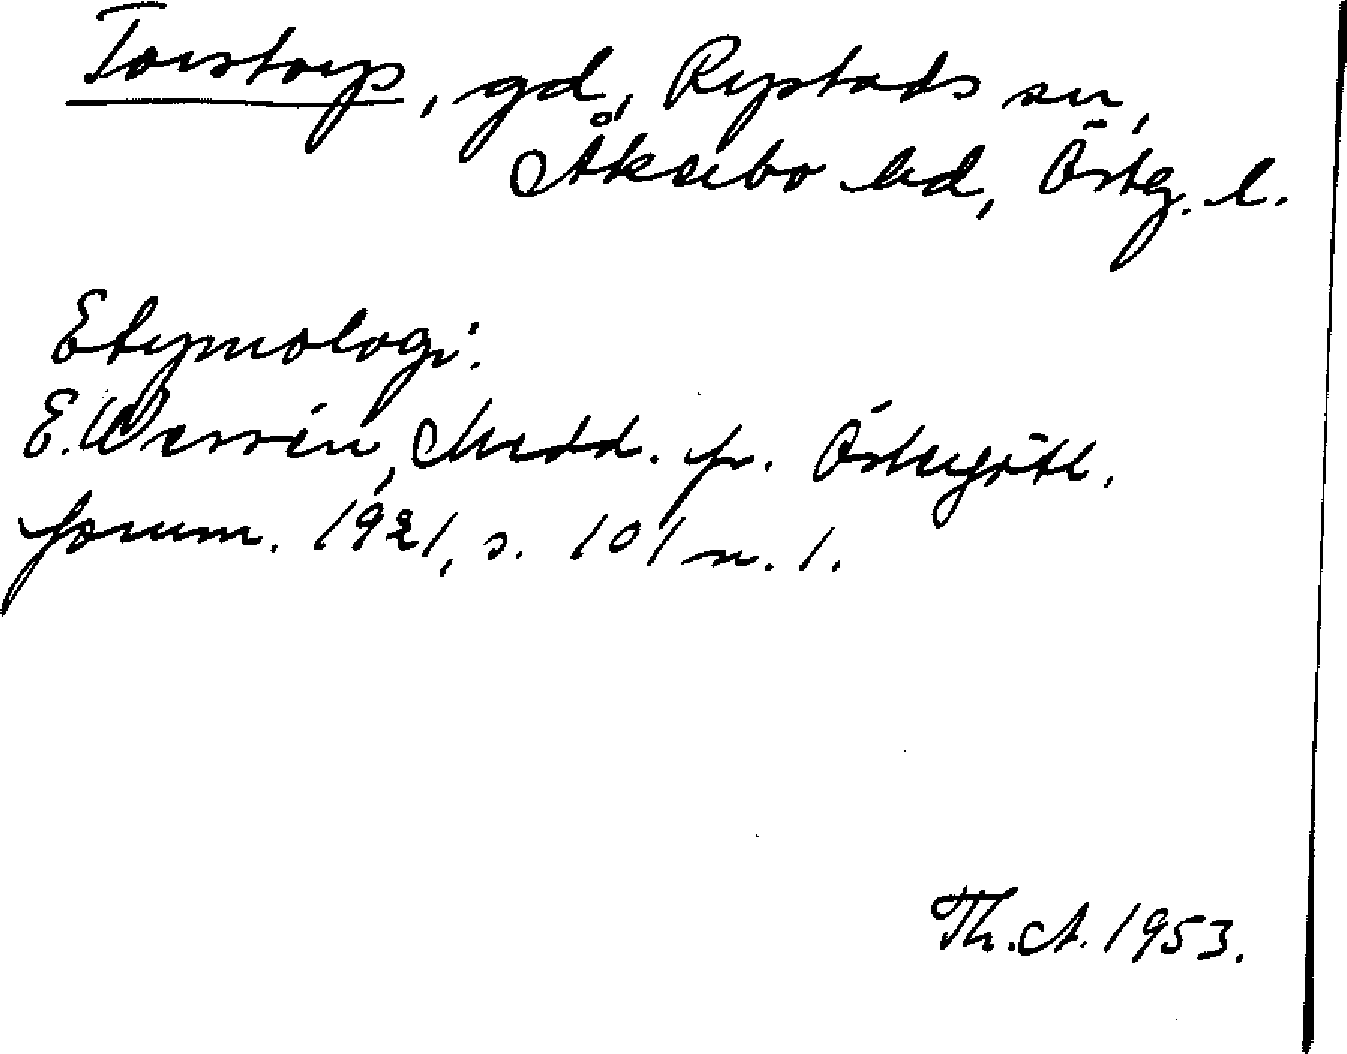 Torstorp, gd, Rystads sn,
Åkerbo hd, Östg. l.
Etymologi:
E. Wessén, Medd. fr. Östergötl.
fornm. 1921, s. 101 n. 1.
Th. A. 1953.